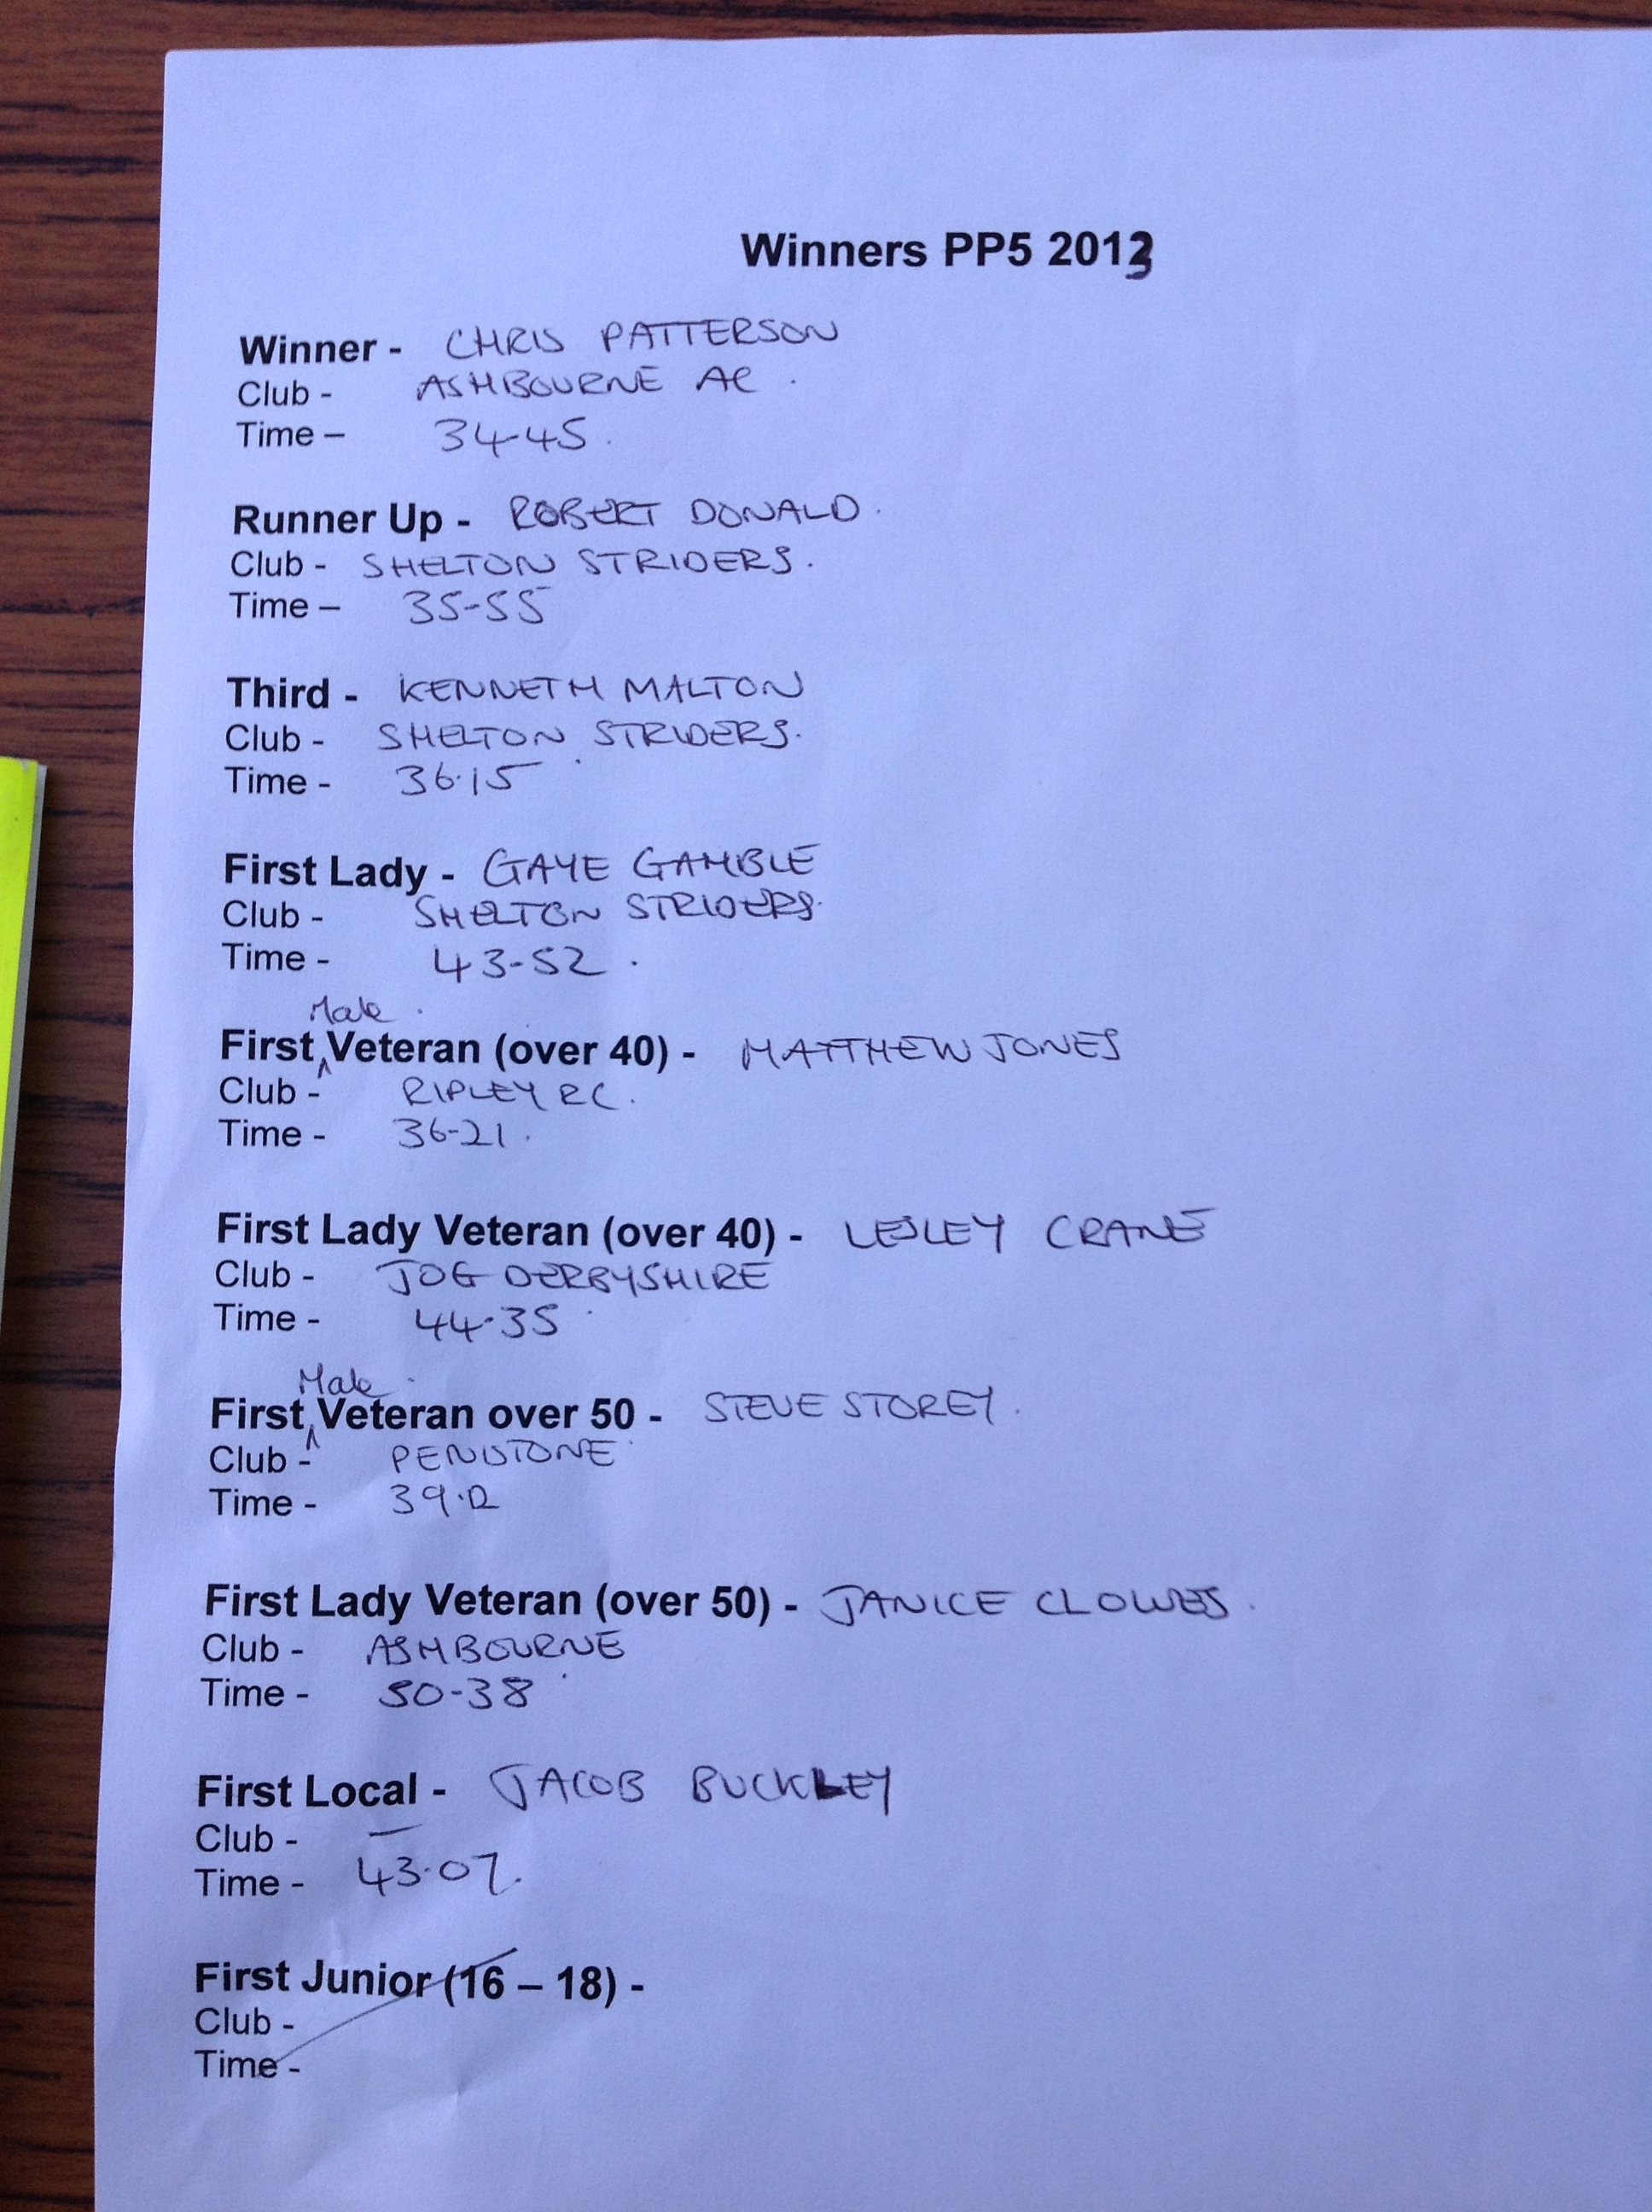 Winners PP5 2013
Winner - CHRIS PATTERSON
Club - ASHBOURNE AC.
Time – 34-45.
Runner Up - ROBERT DONALD.
Club - SHELTON STRIDERS.
Time – 35-55
Third - KENNETH MALTON
Club - SHELTON STRIDERS.
Time - 36.15
First Lady - GAYE GAMBLE
Club - SHELTON STRIDERS.
Time - 43-52.
Male
First Veteran (over 40) - MATTHEW JONES
Club - RIPLEY RC.
Time - 36-21.
First Lady Veteran (over 40) - LESLEY CRANE
Club - JOG DERBYSHIRE
Time - 44.35
Male
First Veteran over 50 - STEVE STOREY.
Club - PENISTONE
Time - 39.12
First Lady Veteran (over 50) - JANICE CLOWES.
Club - ASHBOURNE
Time - 50-38
First Local - JACOB BUCKLEY
Club - —
Time - 43.07.
First Junior (16 – 18) -
Club -
Time -